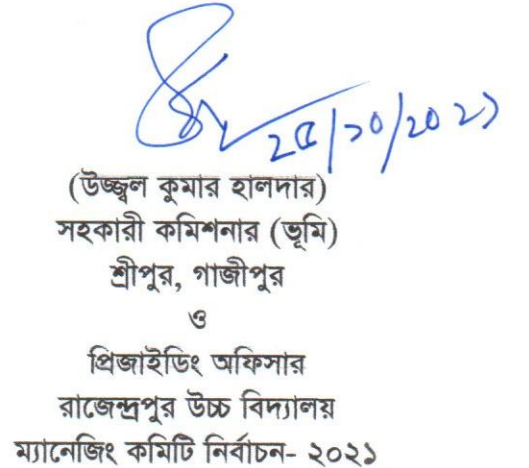 ২৫/১০/২০২১
(উজ্জ্বল কুমার হালদার)
সহকারী কমিশনার (ভূমি)
শ্রীপুর, গাজীপুর
ও
প্রিজাইডিং অফিসার
রাজেন্দ্রপুর উচ্চ বিদ্যালয়
ম্যানেজিং কমিটি নির্বাচন- ২০২১